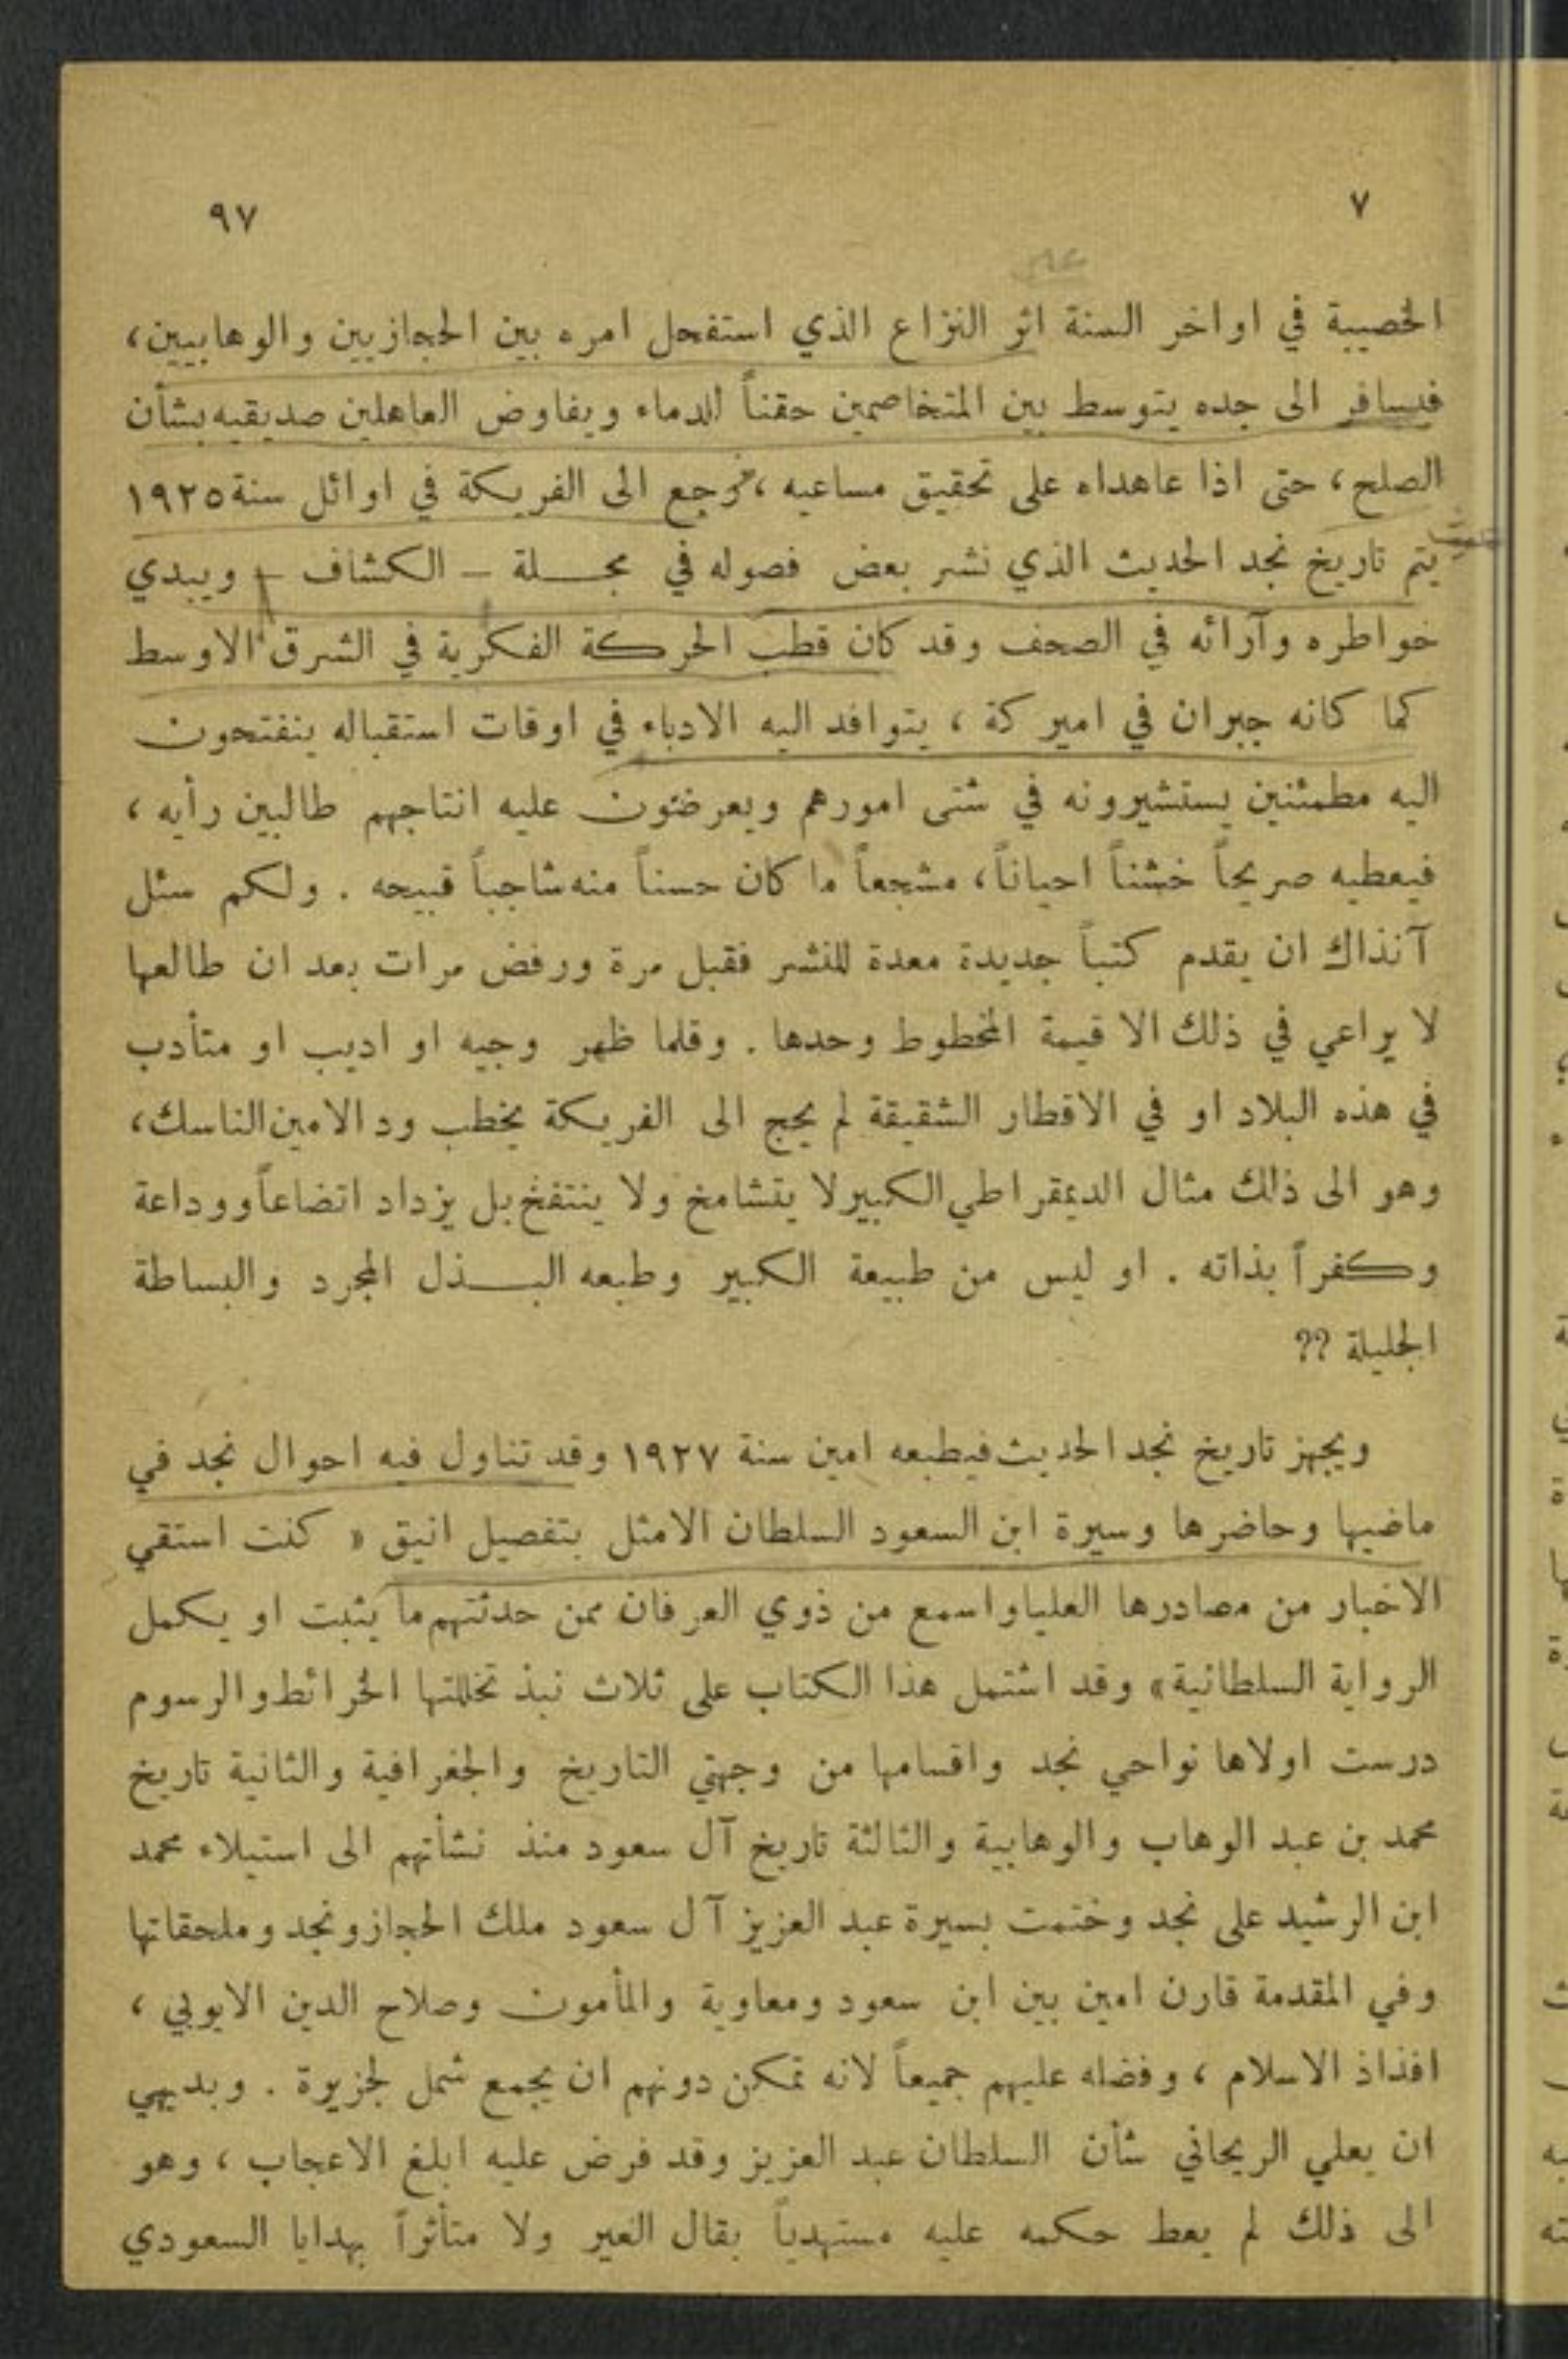 ٧ ٩٧
الخصيبة في اواخر السنة اثر النزاع الذي استفحل امره بين الحجازيين والوهابيين،
فيسافر الى جده يتوسط بين المتخاصمين حقناً للدماء ويفاوض العاهلين صديقيه بشأن
الصلح، حتى اذا عاهداه على تحقيق مساعيه، رجع الى الفريكة في اوائل سنة ١٩٢٥
يتم تاريخ نجد الحديث الذي نشر بعض فصوله في مجلة – الكشاف – ويبدي
خواطره وآرائه في الصحف وقد كان قطب الحركة الفكرية في الشرق الاوسط
كما كانه جبران في اميركة ، يتوافد اليه الادباء في اوقات استقباله ينفتحون
اليه مطمئنين يستشيرونه في شتى امورهم ويعرضون عليه انتاجهم طالبين رأيه ،
فيعطيه صريحاً خشناً احياناً، مشجعاً ما كان حسناً منه شاجباً قبيحه . ولكم سئل
آنذاك ان يقدم كتباً جديدة معدة للنشر فقبل مرة ورفض مرات بعد ان طالعها
لا يراعي في ذلك الا قيمة المخطوط وحدها . وقلما ظهر وجيه او اديب او متأدب
في هذه البلاد او في الاقطار الشقيقة لم يحج الى الفريكة يخطب ود الامين الناسك،
وهو الى ذلك مثال الديمقراطي الكبير لا يتشامخ ولا ينتفخ بل يزداد اتضاعاً ووداعة
وكفراً بذاته . او ليس من طبيعة الكبير وطبعه البذل المجرد والبساطة
الجليلة ؟؟
ويجهز تاريخ نجد الحديث فيطبعه امين سنة ١٩٢٧ وقد تناول فيه احوال نجد في
ماضيها وحاضرها وسيرة ابن السعود السلطان الامثل بتفصيل انيق « كنت استقي
الاخبار من مصادرها العليا واسمع من ذوي العرفان ممن حدثتهم ما يثبت او يكمل
الرواية السلطانية» وقد اشتمل هذا الكتاب على ثلاث نبذ تخللتها الخرائط والرسوم
درست اولاها نواحي نجد واقسامها من وجهتي التاريخ والجغرافية والثانية تاريخ
محمد بن عبد الوهاب والوهابية والثالثة تاريخ آل سعود منذ نشأتهم الى استيلاء محمد
ابن الرشيد على نجد وختمت بسيرة عبد العزيز آل سعود ملك الحجاز ونجد وملحقاتها
وفي المقدمة قارن امين بين ابن سعود ومعاوية والمأمون وصلاح الدين الايوبي ،
افذاذ الاسلام ، وفضله عليهم جميعاً لانه تمكن دونهم ان يجمع شمل لجزيرة . وبديهي
ان يعلي الريحاني شأن السلطان عبد العزيز وقد فرض عليه ابلغ الاعجاب ، وهو
الى ذلك لم يعط حكمه عليه مستهدياً بقال الغير ولا متأثراً بهدايا السعودي